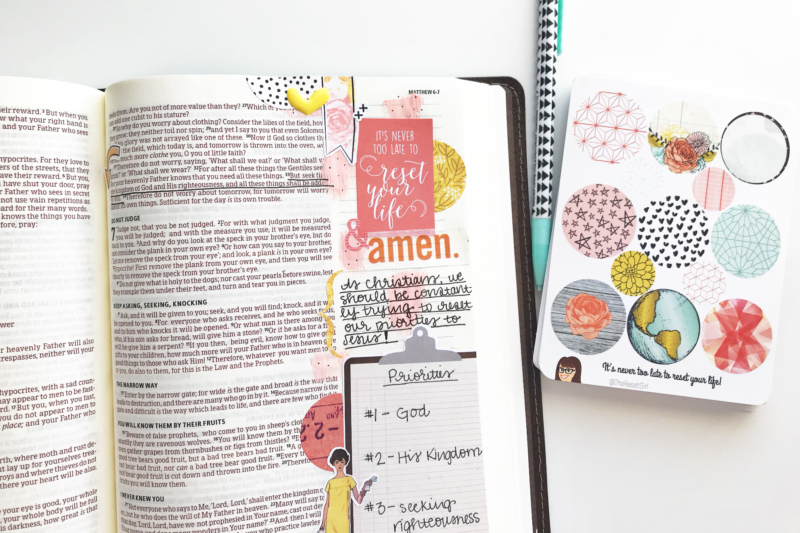 their reward. ³But when you
know what your right hand is
and your Father who sees
hypocrites. For they love to
of the streets, that they
have their reward. ⁶But
have shut your door, pray
who sees in secret
use vain repetitions as
heard for their many words.
knows the things you have
pray:
power
heavenly Father will also
trespasses, neither will your
hypocrites, with a sad coun-
may appear to men to be fast-
But you, when you fast,
you do not appear to men to
place; and your Father who
earth, where moth and rust de-
lay up for yourselves trea-
and where thieves do not
there your heart will be also.
eye is good, your whole
your whole body will be full
is darkness, how great is that
MATTHEW 6-7
them. Are you not of more value than they? ²⁷Which of
add one cubit to his stature?
do you worry about clothing? Consider the lilies of the field, how
grow: they neither toil nor spin; ²⁹and yet I say to you that even Solomon
glory was not arrayed like one of these. ³⁰Now if God so clothes the
the field, which today is, and tomorrow is thrown into the oven, will
much more clothe you, O you of little faith?
do not worry, saying, 'What shall we eat?' or 'What shall we
or 'What shall we wear?' ³²For after all these things the Gentiles seek.
your heavenly Father knows that you need all these things. ³³But seek
kingdom of God and His righteousness, and all these things shall be added
³⁴Therefore do not worry about tomorrow, for tomorrow will worry
own things. Sufficient for the day is its own trouble.
DO NOT JUDGE
7 "Judge not, that you be not judged. ²For with what judgment you judge,
will be judged; and with the measure you use, it will be measured
to you. ³And why do you look at the speck in your brother's eye, but do
consider the plank in your own eye? ⁴Or how can you say to your brother,
'Let me remove the speck from your eye'; and look, a plank is in your own eye?
Hypocrite! First remove the plank from your own eye, and then you will see
clearly to remove the speck from your brother's eye.
"Do not give what is holy to the dogs; nor cast your pearls before swine, lest
they trample them under their feet, and turn and tear you in pieces.
KEEP ASKING, SEEKING, KNOCKING
"Ask, and it will be given to you; seek, and you will find; knock, and it will
be opened to you. ⁸For everyone who asks receives, and he who seeks finds,
who knocks it will be opened. ⁹Or what man is there among
who, if his son asks for bread, will give him a stone? ¹⁰Or if he asks for a
will he give him a serpent? ¹¹If you then, being evil, know how to give
gifts to your children, how much more will your Father who is in heaven
good things to those who ask Him! ¹²Therefore, whatever you want men to
to you, do also to them, for this is the Law and the Prophets.
THE NARROW WAY
"Enter by the narrow gate; for wide is the gate and broad is the way that
to destruction, and there are many who go in by it. ¹⁴Because narrow is the
gate and difficult is the way which leads to life, and there are few who find
YOU WILL KNOW THEM BY THEIR FRUITS
"Beware of false prophets, who come to you in sheep's
they are ravenous wolves. ¹⁶You will know them by their
men gather grapes from thornbushes or figs from thistles?
good tree bears good fruit, but a bad tree bears bad fruit.
bear bad fruit, nor can a bad tree bear good fruit.
bear good fruit is cut down and thrown into the fire.
I NEVER KNEW YOU
"Not everyone who says to Me, 'Lord, Lord,' shall enter the kingdom
but he who does the will of My Father in heaven. ²²Many will say to
'Lord, Lord, have we not prophesied in Your name, cast out
and done many wonders in Your name?' ²³And then I will
I never knew you; depart from Me, you who practice
IT'S NEVER
TOO LATE TO
reset
your
life
&
amen.
As christians, we
should be constant
ly trying to reset
our priorities to
Jesus!
Priorities
#1 - God
#2 - His Kingdom
#3 - seeking
righteousness
It's never too late to reset your life!
@TheResetGirl